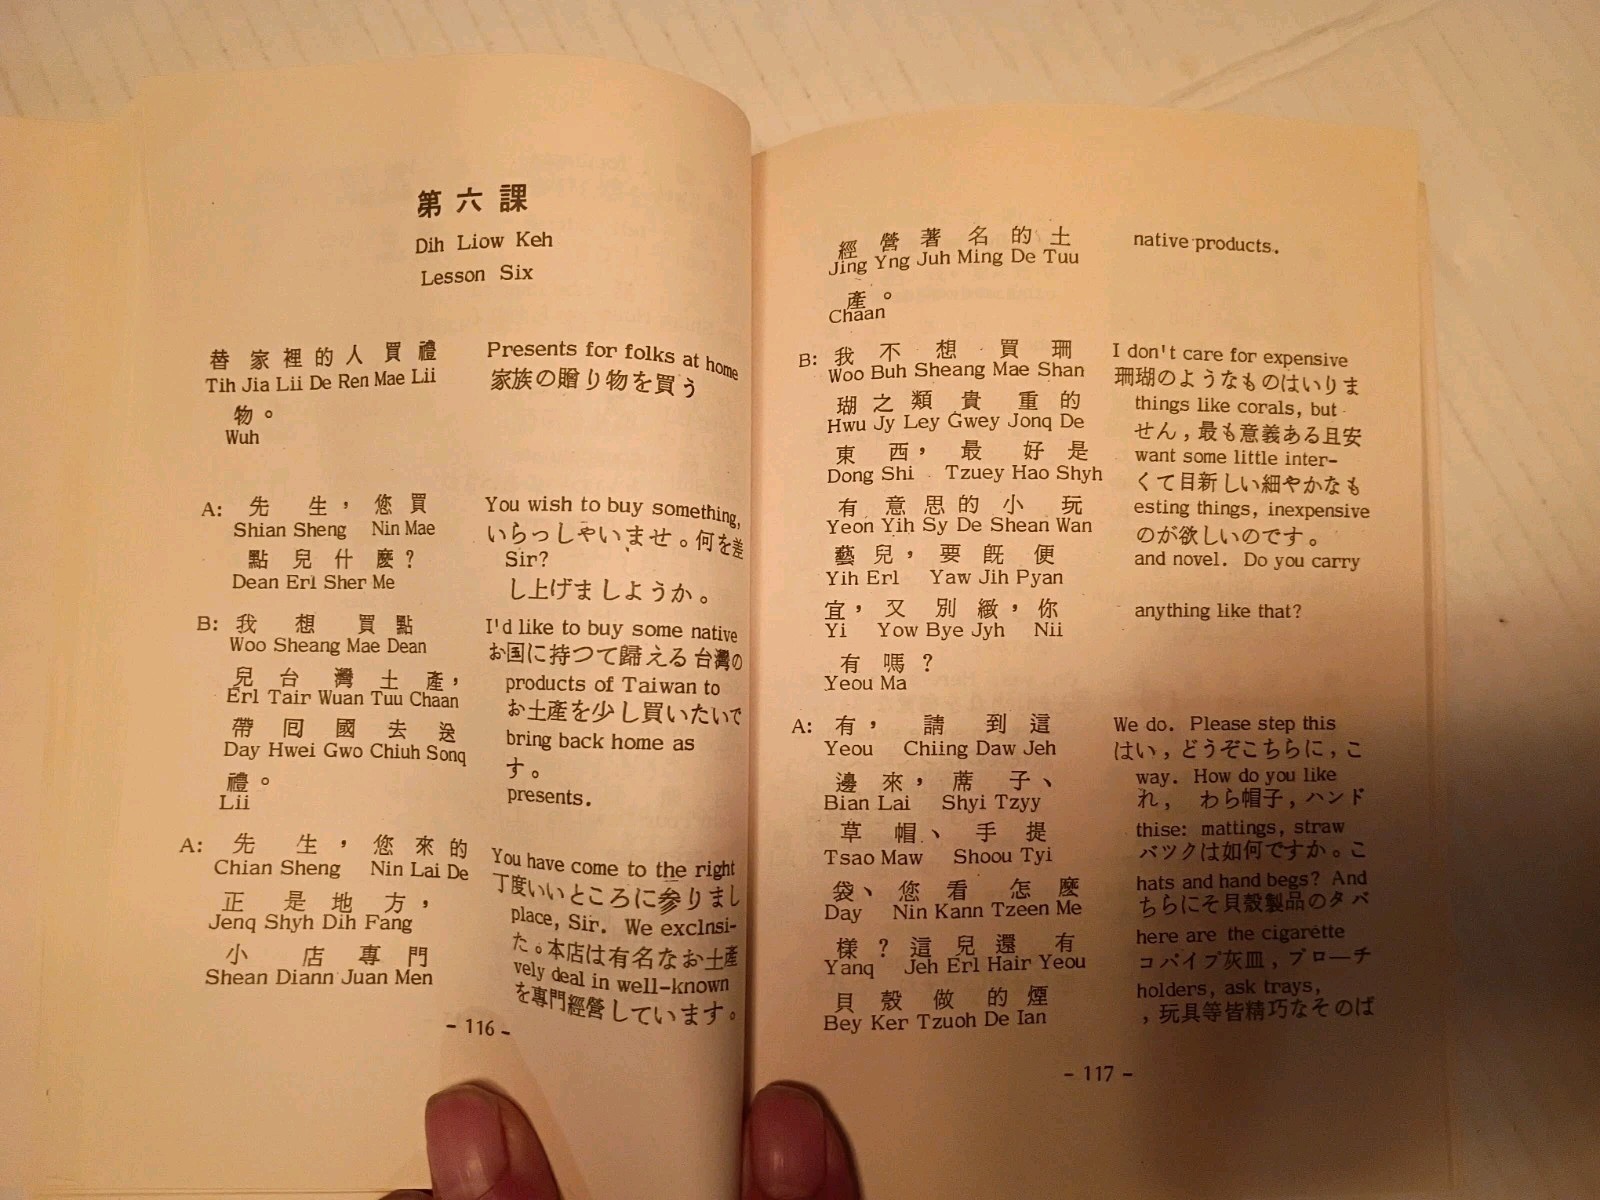 第六課
Dih Liow Keh
Lesson Six
替家裡的人買禮
Tih Jia Lii De Ren Mae Lii
物。
Wuh
Presents for folks at home
家族の贈り物を買う
A: 先生，您買
Shian Sheng Nin Mae
點兒什麽？
Dean Erl Sher Me
You wish to buy something,
いらっしゃいませ。何を差
Sir?
し上げましようか。
B: 我想買點
Woo Sheang Mae Dean
兒台灣土產，
Erl Tair Wuan Tuu Chaan
帶囘國去送
Day Hwei Gwo Chiuh Sonq
禮。
Lii
I'd like to buy some native
お国に持つて歸える台灣の
products of Taiwan to
お土產を少し買いたいで
bring back home as
す。
presents.
A: 先生，您來的
Chian Sheng Nin Lai De
正是地方，
Jenq Shyh Dih Fang
小店專門
Shean Diann Juan Men
You have come to the right
丁度いいところに参りまし
place, Sir. We exclnsi-
た。本店は有名なお土產
vely deal in well-known
を專門經營しています。
- 116 -
經營著名的土
Jing Yng Juh Ming De Tuu
產。
Chaan
native products.
B: 我不想買珊
Woo Buh Sheang Mae Shan
瑚之類貴重的
Hwu Jy Ley Gwey Jonq De
東西，最好是
Dong Shi Tzuey Hao Shyh
有意思的小玩
Yeon Yih Sy De Shean Wan
藝兒，要旣便
Yih Erl Yaw Jih Pyan
宜，又別緻，你
Yi Yow Bye Jyh Nii
有嗎？
Yeou Ma
I don't care for expensive
珊瑚のようなものはいりま
things like corals, but
せん，最も意義ある且安
want some little inter-
くて目新しい細やかなも
esting things, inexpensive
のが欲しいのです。
and novel. Do you carry
anything like that?
A: 有，請到這
Yeou Chiing Daw Jeh
邊來，蓆子、
Bian Lai Shyi Tzyy
草帽、手提
Tsao Maw Shoou Tyi
袋、您看怎麽
Day Nin Kann Tzeen Me
樣？這兒還有
Yanq Jeh Erl Hair Yeou
貝殼做的煙
Bey Ker Tzuoh De Ian
We do. Please step this
はい，どうぞこちらに，こ
way. How do you like
れ，わら帽子，ハンド
thise: mattings, straw
バツクは如何ですか。こ
hats and hand begs? And
ちらにそ貝殼製品のタバ
here are the cigarette
コパイプ灰皿，ブローチ
holders, ask trays,
，玩具等皆精巧なそのば
- 117 -